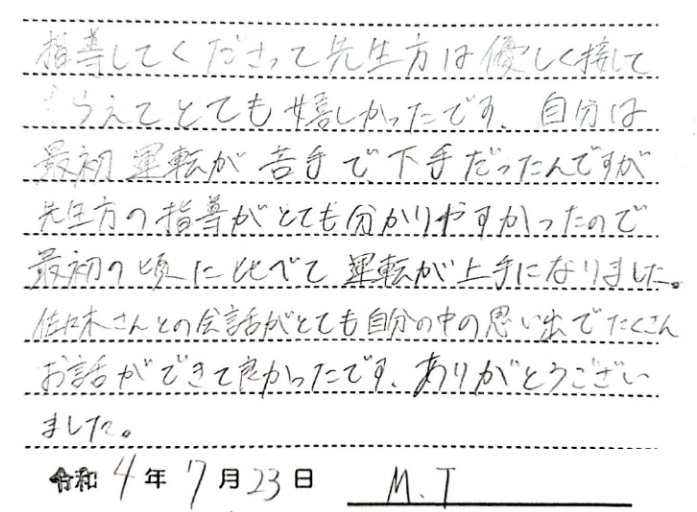 指導してくださって先生方は優しく接して
らえてとても嬉しかったです。自分は
最初運転が苦手で下手だったんですが
先生方の指導がとても分かりやすかったので
最初の頃に比べて運転が上手になりました。
佐々木さんとの会話がとても自分の中の思い出でたくさん
お話ができて良かったです。ありがとうござい
ました。
令和4年7月23日 M.T